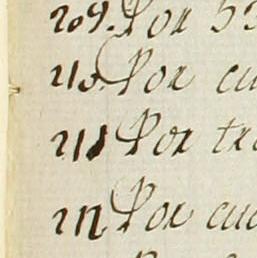 209. Por 53
210 Por cu
211 Por tr
212 Por cu